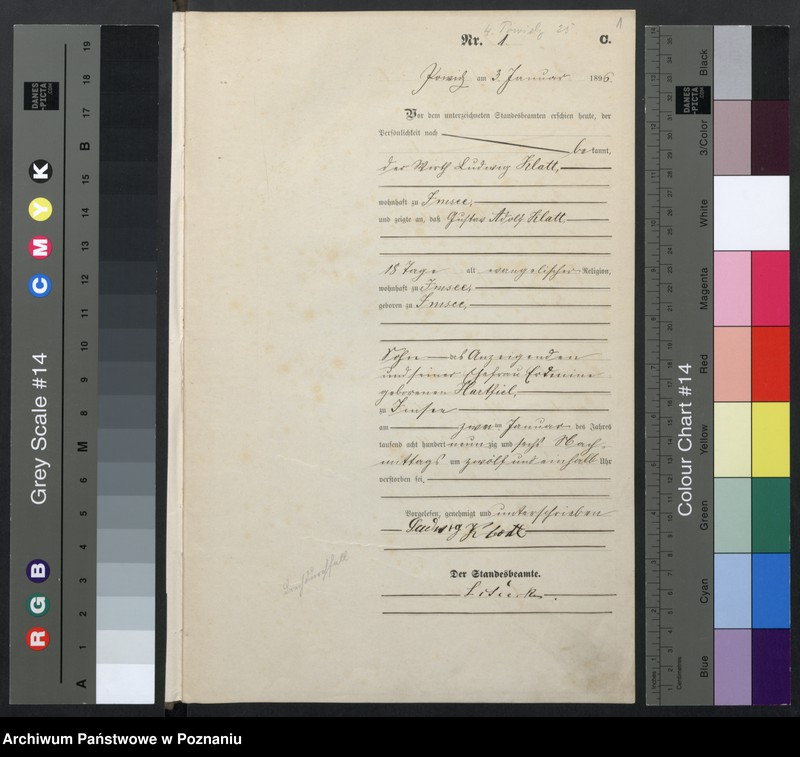 4. Powidz 25
1
Nr. 1. C.
Powidz am 3. Januar 1896.
Vor dem unterzeichneten Standesbeamten erschien heute, der
Persönlichkeit nach
bekannt,
der Wirth Ludwig Klatt,
wohnhaft zu Imsee,
und zeigte an, daß Gustav Adolf Klatt
18 Tage alt evangelischer Religion,
wohnhaft zu Imsee,
geboren zu Imsee,
Sohn des Anzeigenden
und seiner Ehefrau Erdmine
geborenen Hartfiel,
zu Imsee
am zweiten Januar des Jahres
tausend acht hundert neunzig und sechs Nach-
mittags um zwölf und einhalb Uhr
verstorben sei.
Vorgelesen, genehmigt und unterschrieben
Ludwig Klatt
Der Standesbeamte.
Grey Scale #14
Colour Chart #14
A 1 2 3 4 5 6 M 8 9 10 11 12 13 14 15 B 17 18 19
R G B
C M Y K
DANES
-PICTA
.COM
Black
3/Color
White
Magenta
Red
Yellow
Green
Cyan
Blue
Inches
Centimetres
Archiwum Państwowe w Poznaniu